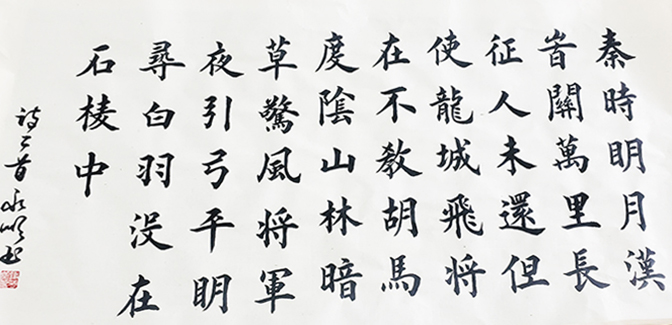 秦時明月漢
旹關萬里長
征人未還但
使龍城飛将
在不教胡馬
度陰山林暗
草驚風将軍
夜引弓平明
尋白羽没在
石棱中
诗二首